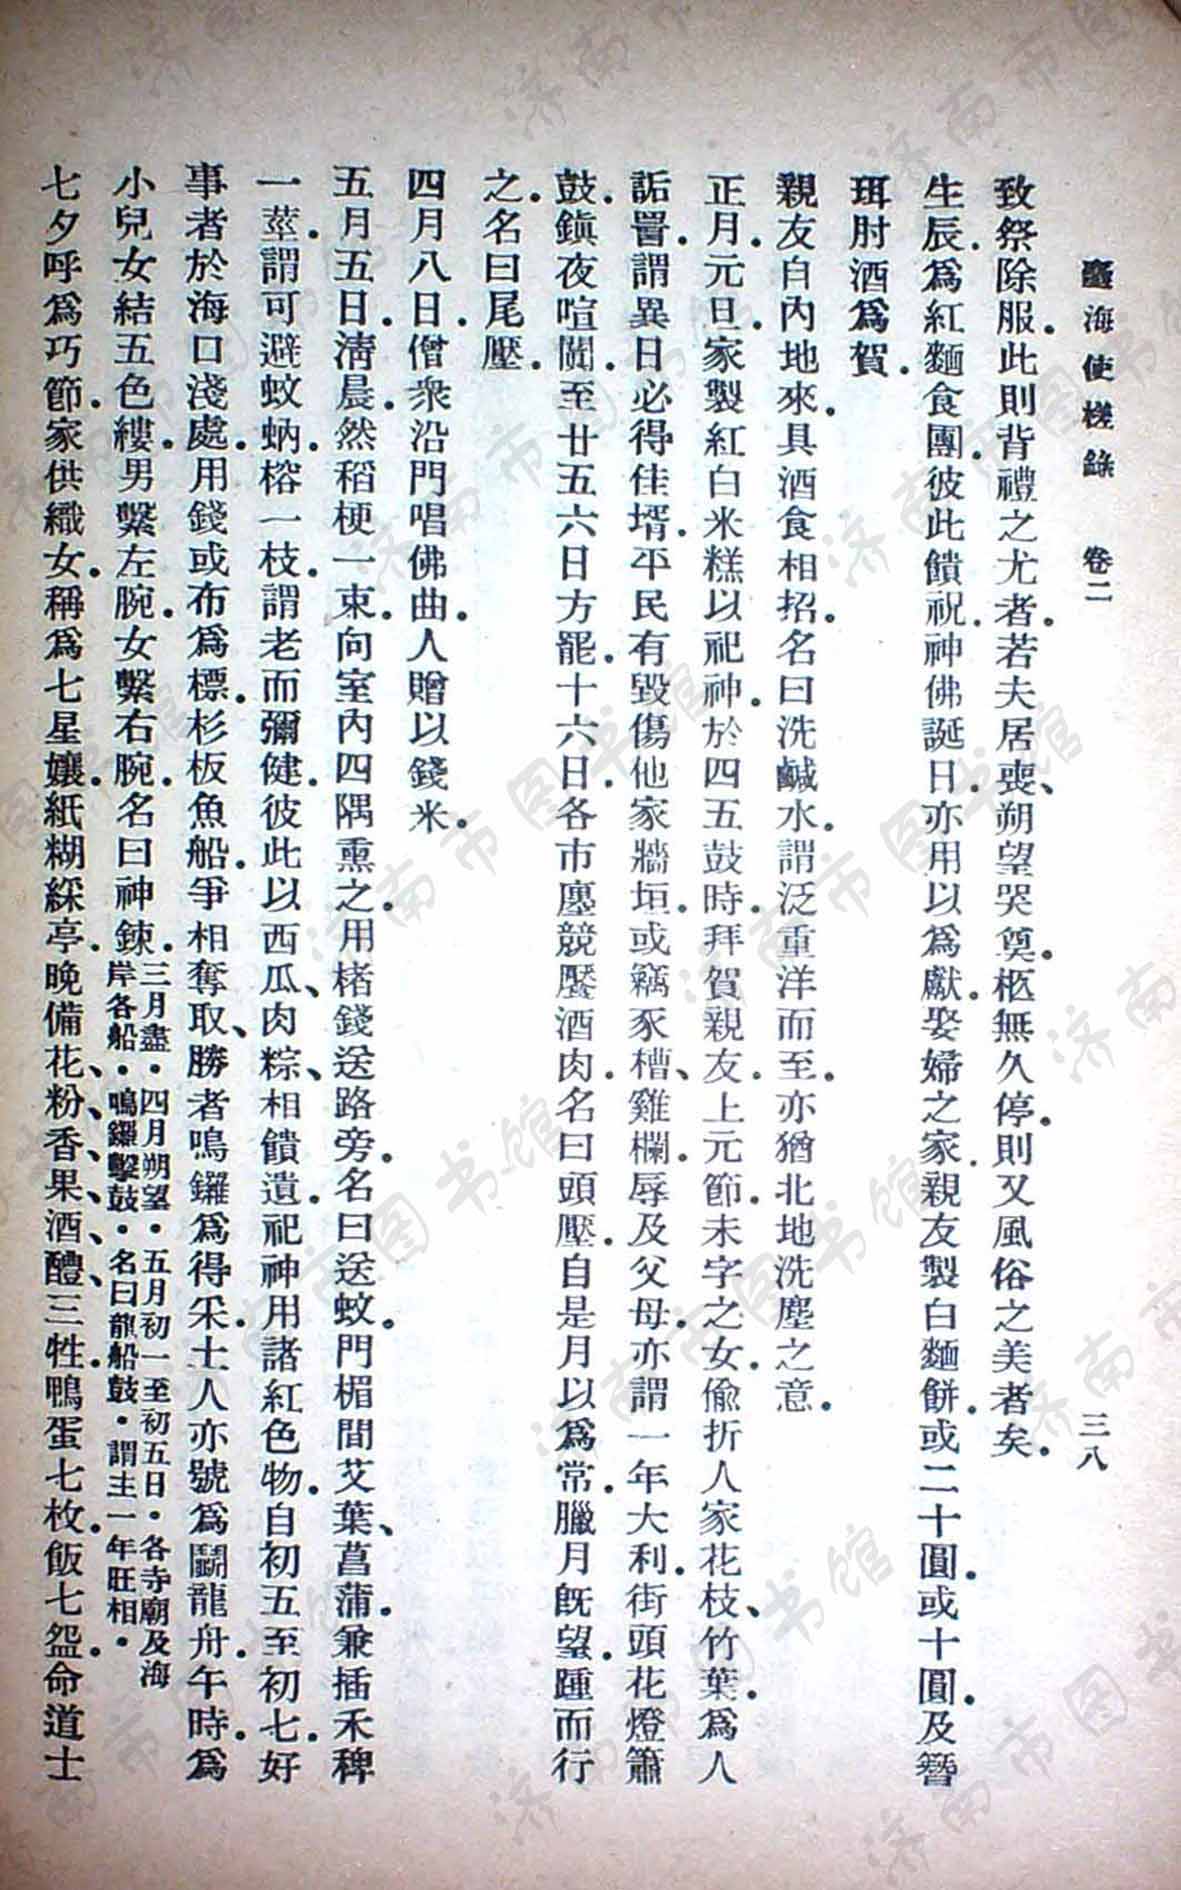 臺海使槎錄　卷二　三八
致祭除服。此則背禮之尤者。若夫居喪、朔望哭奠。柩無久停。則又風俗之美者矣。
生辰。為紅麵食團。彼此饋祝。神佛誕日。亦用以為獻。娶婦之家。親友製白麵餅。或二十圓。或十圓。及簪
珥肘酒為賀。
親友自內地來。具酒食相招。名曰洗鹹水。謂泛重洋而至。亦猶北地洗塵之意。
正月。元旦。家製紅白米糕以祀神。於四五鼓時。拜賀親友。上元節。未字之女。偷折人家花枝、竹葉。為人
詬詈。謂異日必得佳壻。平民有毀傷他家牆垣。或竊豕槽、雞欄。辱及父母。亦謂一年大利。街頭花燈簫
鼓。鎮夜喧闐。至廿五六日方罷。十六日。各市廛競饜酒肉。名曰頭壓。自是月以為常。臘月既望。踵而行
之。名曰尾壓。
四月八日。僧衆沿門唱佛曲。人贈以錢米。
五月五日。清晨。然稻梗一束。向室內四隅熏之。用楮錢送路旁。名曰送蚊。門楣間艾葉、菖蒲。兼插禾稗
一莖。謂可避蚊蚋。榕一枝。謂老而彌健。彼此以西瓜、肉粽、相饋遺。祀神用諸紅色物。自初五至初七。好
事者於海口淺處。用錢或布為標。杉板魚船。爭相奪取、勝者鳴鑼為得采。土人亦號為鬬龍舟。午時。為
小兒女結五色縷。男繫左腕。女繫右腕。名曰神鍊。三月盡。四月朔望。五月初一至初五日。各寺廟及海
岸各船。鳴鑼擊鼓。名曰龍船鼓。謂主一年旺相。
七夕呼為巧節。家供織女。稱為七星孃。紙糊綵亭。晚備花、粉、香、果、酒、醴、三牲。鴨蛋七枚。飯七盌。命道士